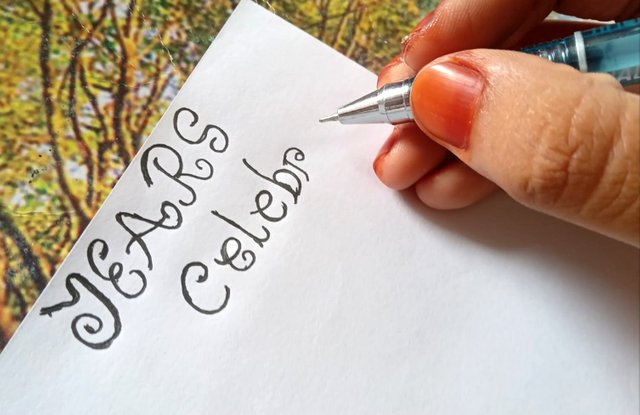 YEARS
Celebr